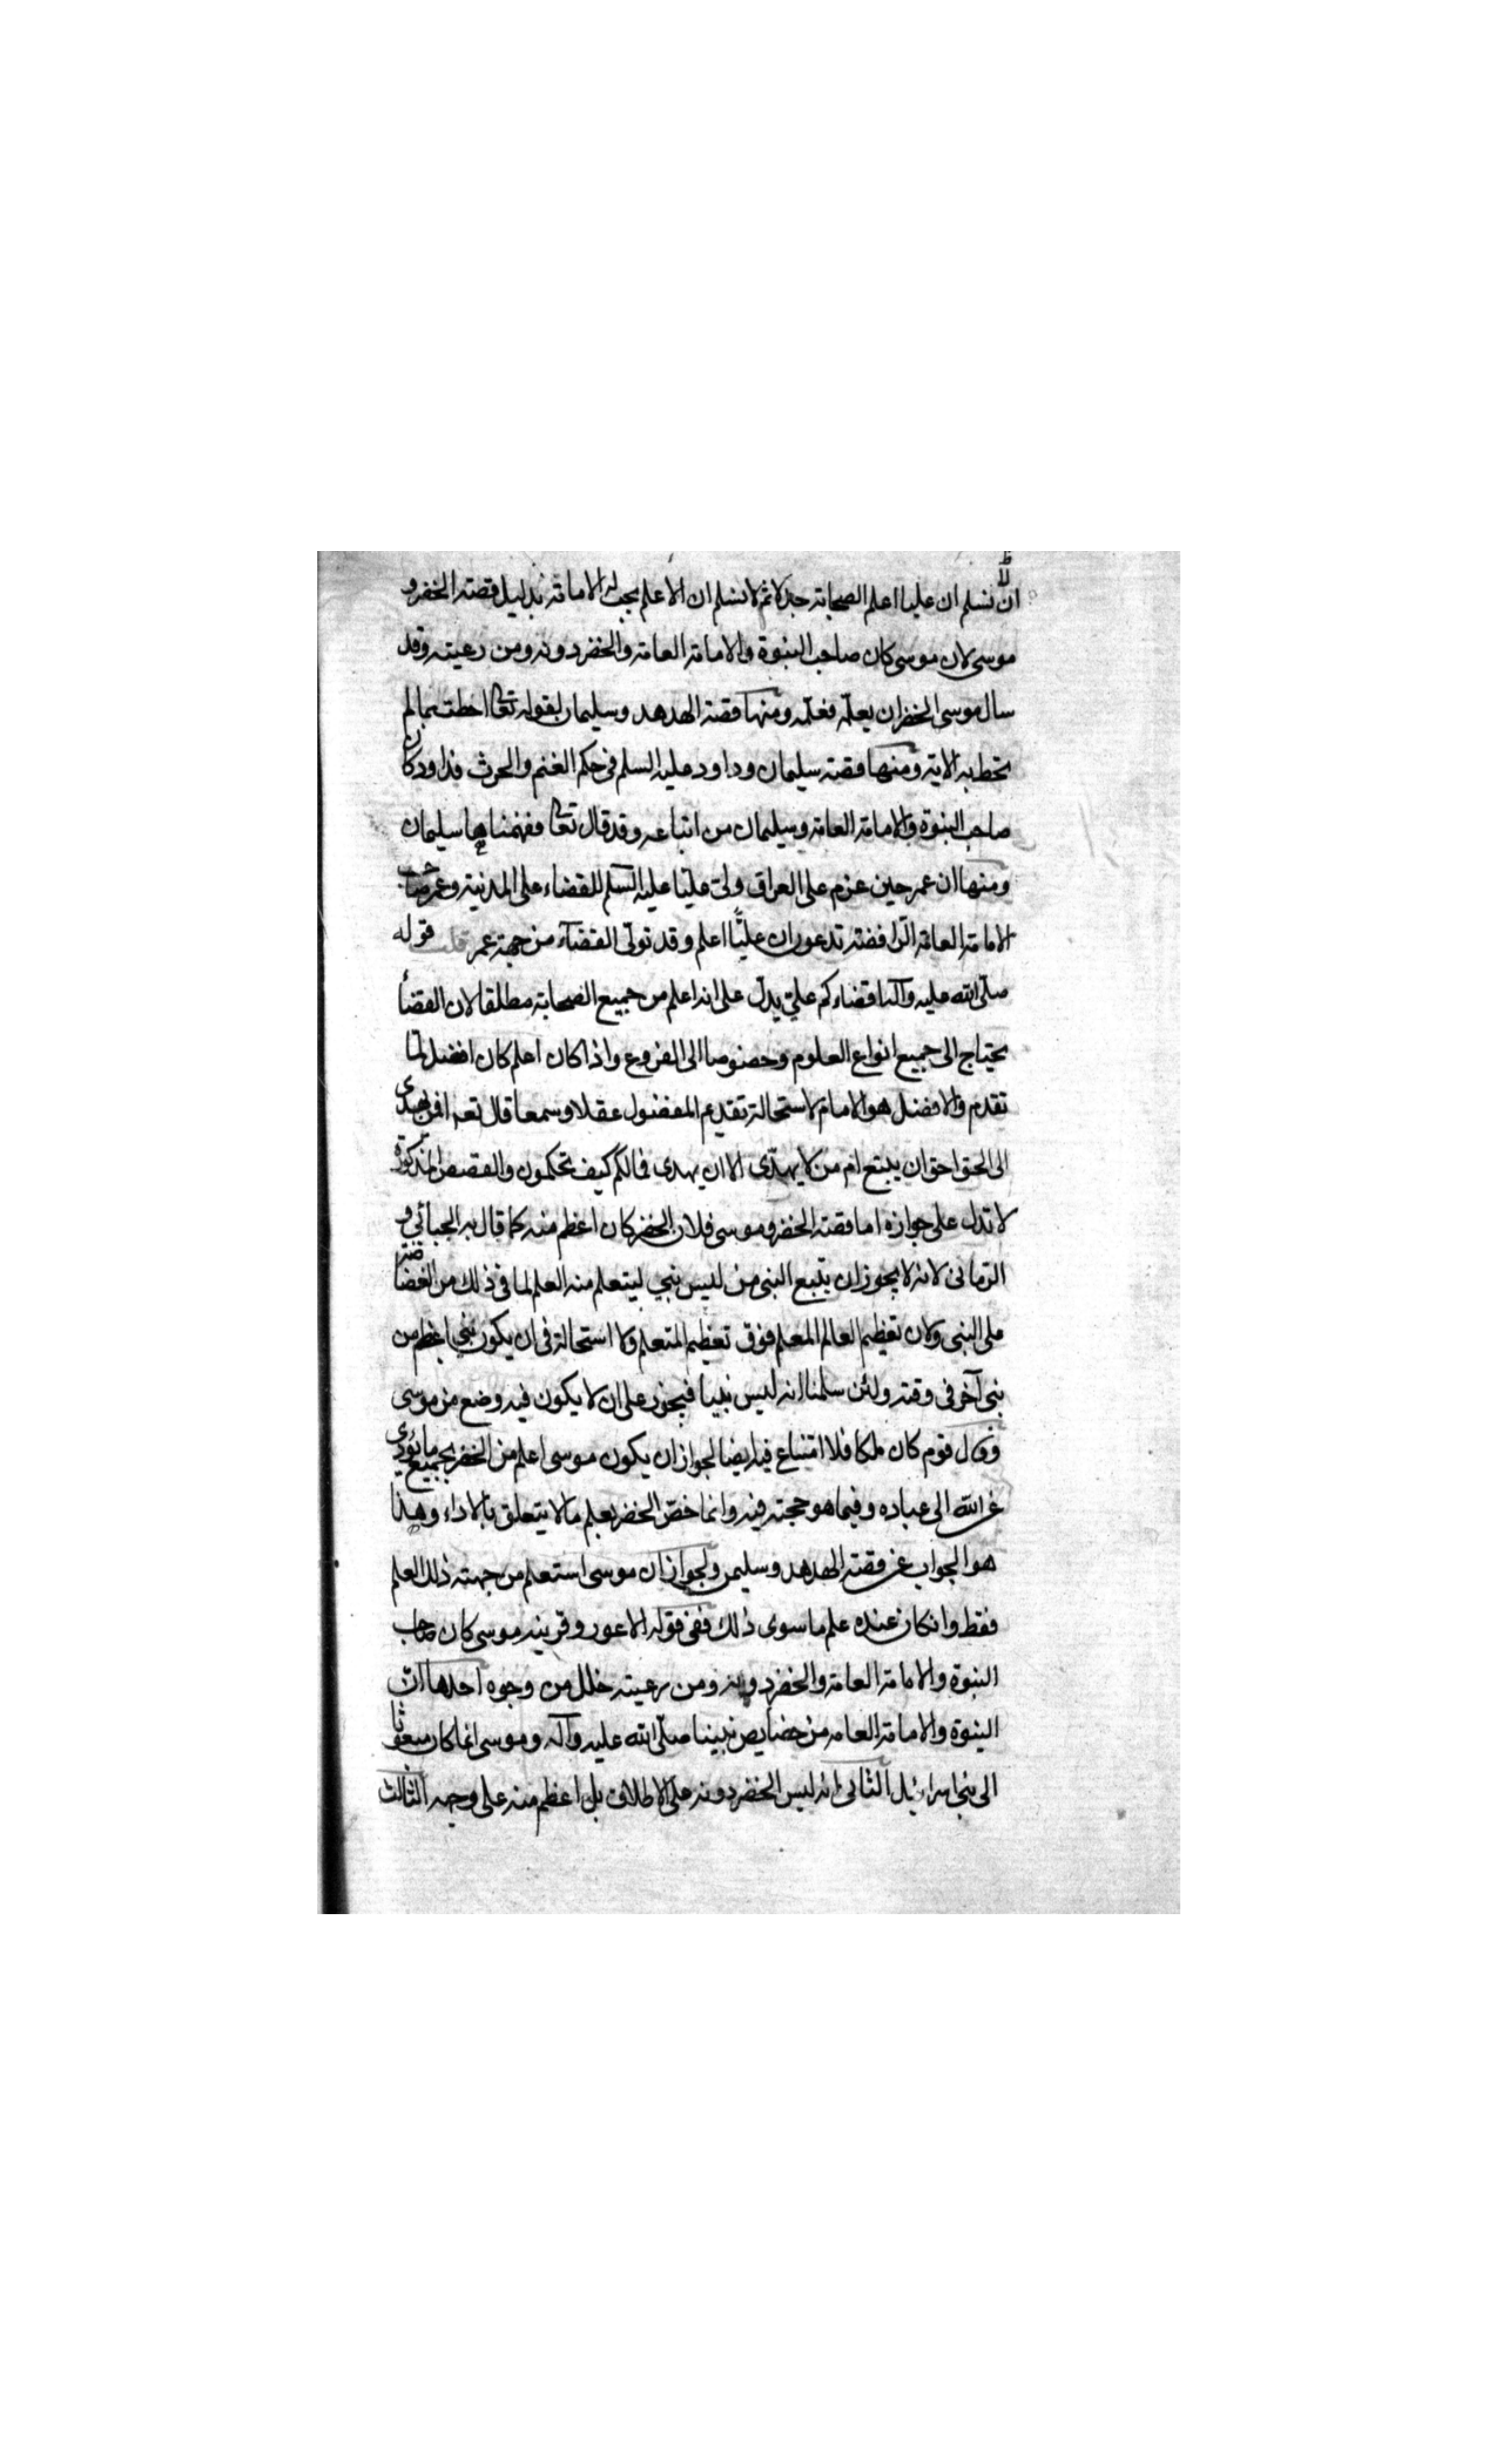 انا نسلم ان عليا اعلم الصحابة جدلا ثم لا نسلم ان الاعلم يجب له الامامة بدليل قصة الخضر و
موسى لان موسى كان صاحب النبوة والامامة العامة والخضر دونه ومن رعيته وقد
سال موسى الخضر ان يعلّمه فعلّمه ومنها قصة الهدهد وسليمان لقوله تعالى احطت بما لم
تحط به الاية ومنها قصة سليمان وداود عليه السلم فى حكم الغنم والحرث فداود كان
صاحب النبوة والامامة العامة وسليمان من اتباعه وقد قال تعالى ففهمناها سليمان
ومنها ان عمر حين عزم على العراق ولّى عليّا عليه السلم للقضاء على المدينة وعمر صاحب
الامامة العامة الرافضة تدعون ان عليّا اعلم وقد تولّى القضآء من جهة عمر قلت قوله
صلّى الله عليه وآله اقضاءكم علي يدلّ على انه اعلم من جميع الصحابة مطلقا لان القضأ
يحتاج الى جميع انواع العلوم وخصوصا الى الفروع واذا كان اعلم كان افضل لما
تقدم والافضل هو الامام لاستحالة تقديم المفضول عقلا وسمعا قال تعه افمن يهدى
الى الحق احق ان يتبع ام من لا يهدّى الا ان يهدى فمالكم كيف تحكمون والقصص المذكورة
لا تدل على جوازه اما قصة الخضر وموسى فلان الخضر كان اعظم منه كما قال به الجبائي و
الرمانى لانه لا يجوز ان يتبع النبى من ليس بنبي ليتعلم منه العلم لما فى ذلك من الغضاضة
على النبى ولان تعظيم العالم المعلم فوق تعظيم المتعلم ولا استحالة فى ان يكون نبي اعظم من
نبى آخر فى وقته ولئن سلمنا انه ليس نبيا فيجوز على ان لا يكون فيه وضع من موسى
وقال قوم كان ملكا فلا امتناع فيه ايضا لجواز ان يكون موسى اعلم من الخضر بجميع ما يؤدى
عن الله الى عباده وفيما هو حجته فيه وانما خصّ الخضر بعلم ما لا يتعلق بالاداء وهذا
هو الجواب عن قصة الهدهد وسليمن ولجواز ان موسى استعلم من جهته ذلك العلم
فقط وانكان عنده علم ما سوى ذلك ففى قوله الاعور وقرينه موسى كان صاحب
النبوة والامامة العامة والخضر دونه ومن رعيته خلل من وجوه احدها انّ
النبوة والامامة العامه من خصايص نبينا صلّى الله عليه وآله وموسى انما كان مبعوثا
الى بنى اسرائيل الثانى انه ليس الخضر دونه على الاطلاق بل اعظم منه على وجه الثالث